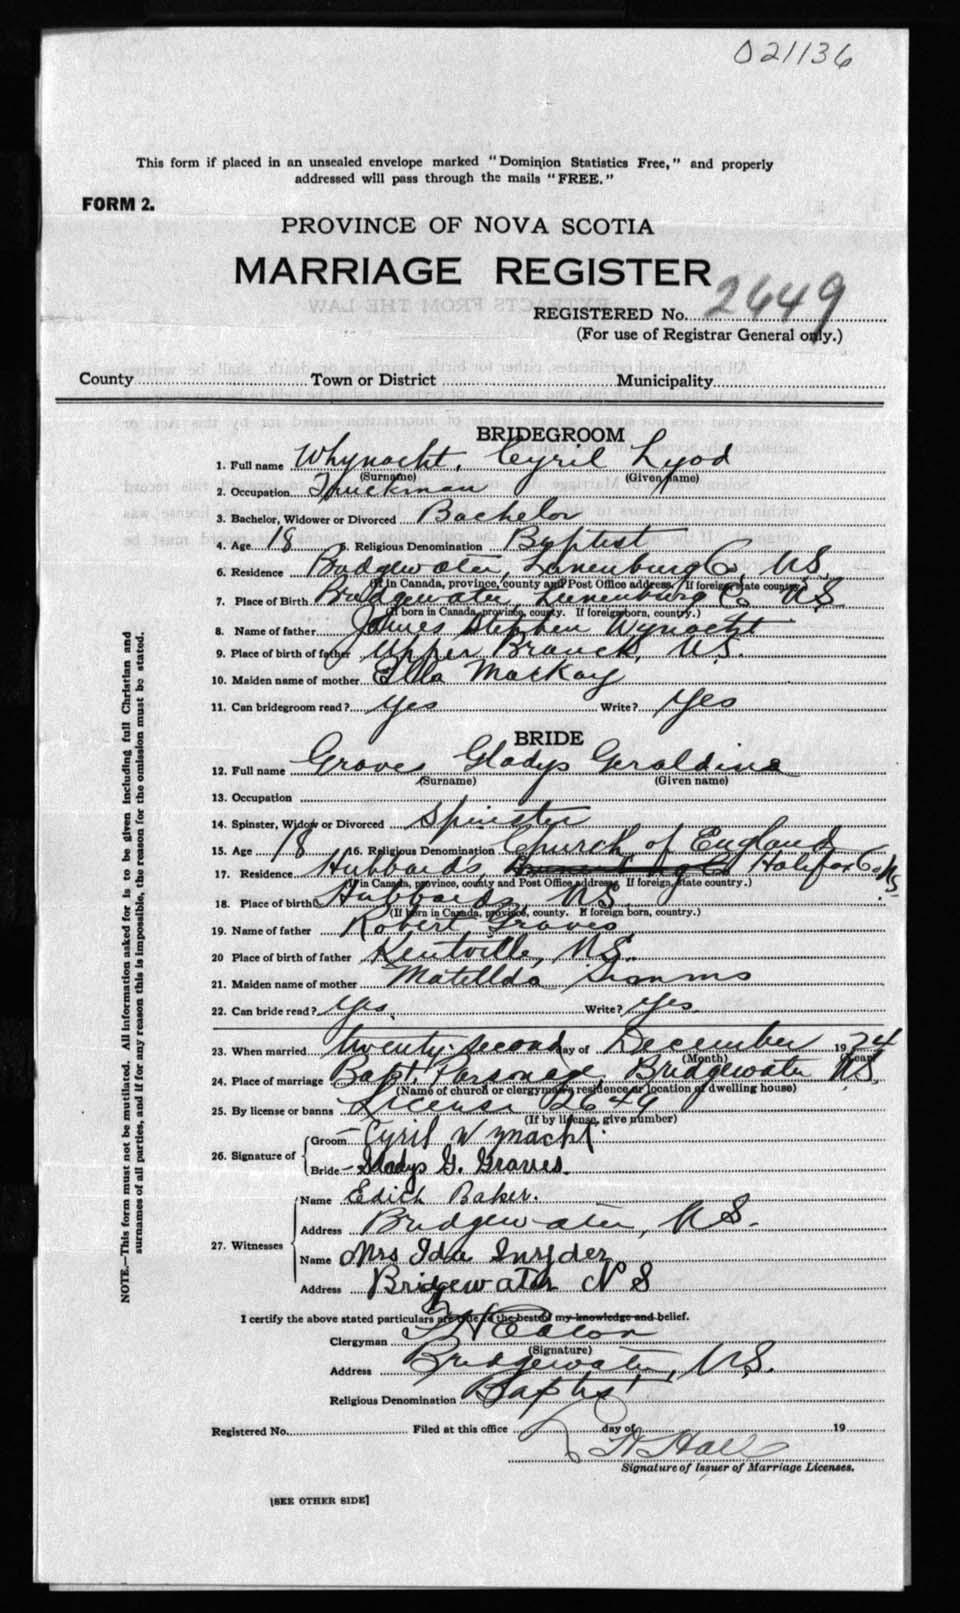 021136
This form if placed in an unsealed envelope marked "Dominion Statistics Free," and properly
addressed will pass through the mails "FREE."
FORM 2.
PROVINCE OF NOVA SCOTIA
MARRIAGE REGISTER
REGISTERED No. 2649
(For use of Registrar General only.)
County Town or District Municipality
BRIDEGROOM
1. Full name Whynacht, Cyril Lyod
(Surname) (Given name)
2. Occupation Truckman
3. Bachelor, Widower or Divorced Bachelor
4. Age 18 5. Religious Denomination Baptist
6. Residence Bridgewater, Lunenburg Co, N.S.
(If in Canada, province, county and Post Office address. If foreign state country.)
7. Place of Birth Bridgewater, Lunenburg Co N.S.
(If born in Canada, province, county. If foreign born, country.)
8. Name of father James Stephen Wynacht
9. Place of birth of father Upper Branch, N.S.
10. Maiden name of mother Ella MacKay
11. Can bridegroom read? Yes Write? Yes
BRIDE
12. Full name Graves Gladys Geraldine
(Surname) (Given name)
13. Occupation
14. Spinster, Widow or Divorced Spinster
15. Age 18 16. Religious Denomination Church of England
17. Residence Hubbards, Halifax Co. N.S.
(If in Canada, province, county and Post Office address. If foreign, state country.)
18. Place of birth Hubbards, N.S.
(If born in Canada, province, county. If foreign born, country.)
19. Name of father Robert Graves
20 Place of birth of father Kentville, N.S.
21. Maiden name of mother Matillda Simms
22. Can bride read? Yes. Write? Yes.
23. When married twenty-second day of December 1924
(Month) (Year)
24. Place of marriage Bapt. Parsonage, Bridgewater N.S.
(Name of church or clergyman's residence or location of dwelling house)
25. By license or banns License 2649
(If by license, give number)
26. Signature of
Groom Cyril Wynacht.
Bride Gladys G. Graves.
27. Witnesses
Name Edith Baker.
Address Bridgewater, N.S.
Name Mrs Ida Snyder
Address Bridgewater N S
I certify the above stated particulars are true to the best of my knowledge and belief.
Clergyman
(Signature)
Address Bridgewater, N.S.
Religious Denomination Baptist
Registered No. Filed at this office day of 19
Hall
Signature of Issuer of Marriage Licenses.
[SEE OTHER SIDE]
NOTE.—This form must not be mutilated. All information asked for is to be given including full Christian and
surnames of all parties, and if for any reason this is impossible, the reason for the omission must be stated.